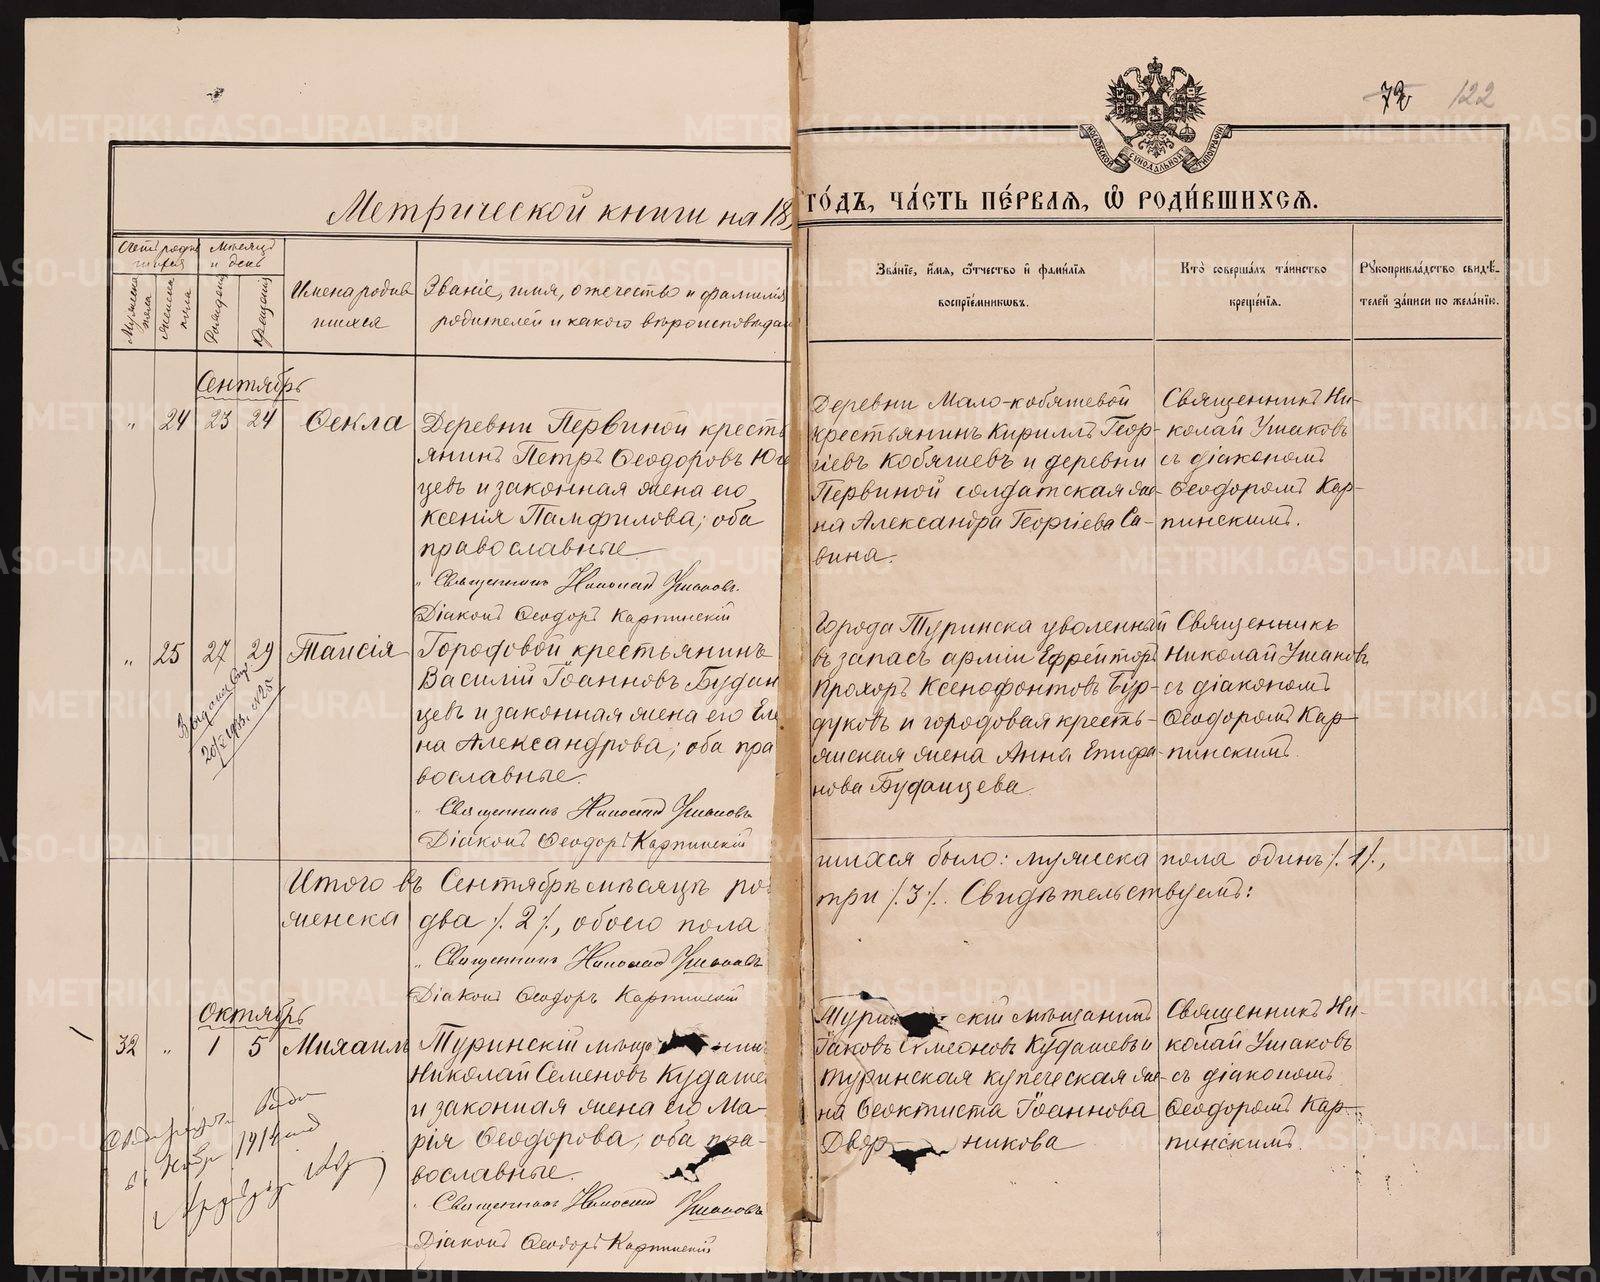 72 122
Метрической книги на 18
го́дъ, ча́сть пе́рвая, ѡ҆ роди́вшихсѧ.
МОСКОВСКОЙ СѴНОДАЛЬНОЙ ТИПОГРАФІИ
Счетъ родив
шихся
Мѣсяцъ
и день
Мужска
пола
Женска
пола
Рожденія
Крещенія
Имена родив
шихся
Званіе, имя, отчество и фамилія
родителей и какого вѣроисповѣдан
Зва́нїе, и҆́мѧ, ѻ҆́тчество и҆ фамі́лїѧ
воспрїе́мниковъ.
Кто̀ соверша́лъ та́инство
креще́нїѧ.
Рꙋкоприкла́дство свидѣ́-
телей за́писи по жела́нїю.
Сентябрь
" 24 23 24 Ѳекла
Деревни Первиной кресть
янинъ Петръ Ѳеодоровъ Юге
цевъ и законная жена его
Ксенія Памфилова; оба
православные
Священникъ Николай Ушаковъ.
Діаконъ Ѳеодоръ Карпинскій
Деревни Мало-кобяшевой
крестьянинъ Кириллъ Геор-
гіевъ Кобяшевъ и деревни
Первиной солдатская же-
на Александра Георгіева Са-
вина.
Священникъ Ни-
колай Ушаковъ
съ діакономъ
Ѳеодоромъ Кар-
пинскимъ.
" 25 27 29 Таисія
20/X 1913 г. №25
Городовой крестьянинъ
Василій Іоанновъ Будан
цевъ и законная жена его Еле
на Александрова; оба пра
вославные.
Священникъ Николай Ушаковъ
Діаконъ Ѳеодоръ Карпинскій
Города Туринска уволенный
въ запасъ арміи Ефрейторъ
Прохоръ Ксенофонтовъ Бур-
дуковъ и городовая кресть-
янская жена Анна Епифа-
нова Буданцева
Священникъ
Николай Ушаковъ
съ діакономъ
Ѳеодоромъ Кар
пинскимъ.
Итого въ Сентябрѣ мѣсяцѣ ро
женска два /. 2 /., обоего пола
Священникъ Николай Ушаковъ
Діаконъ Ѳеодоръ Карпинскій
шихся было: мужска пола одинъ /. 1 /.,
три /. 3 /. Свидѣтельствуемъ:
Октябрь
32 " 1 5 Михаилъ
1914
Туринскій мѣща
Николай Семеновъ Кудаше
и законная жена его Ма-
рія Ѳеодорова, оба пра-
вославные.
Священникъ Николай Ушаковъ
Діаконъ Ѳеодоръ Карпинскій
Турин скій мѣщанинъ
Іаковъ Симеоновъ Кудашевъ и
туринская купеческая же-
на Ѳеоктиста Іоаннова
Двор никова
Священникъ Ни-
колай Ушаковъ
съ діакономъ
Ѳеодоромъ Кар
пинскимъ.
METRIKI.GASO-URAL.RU